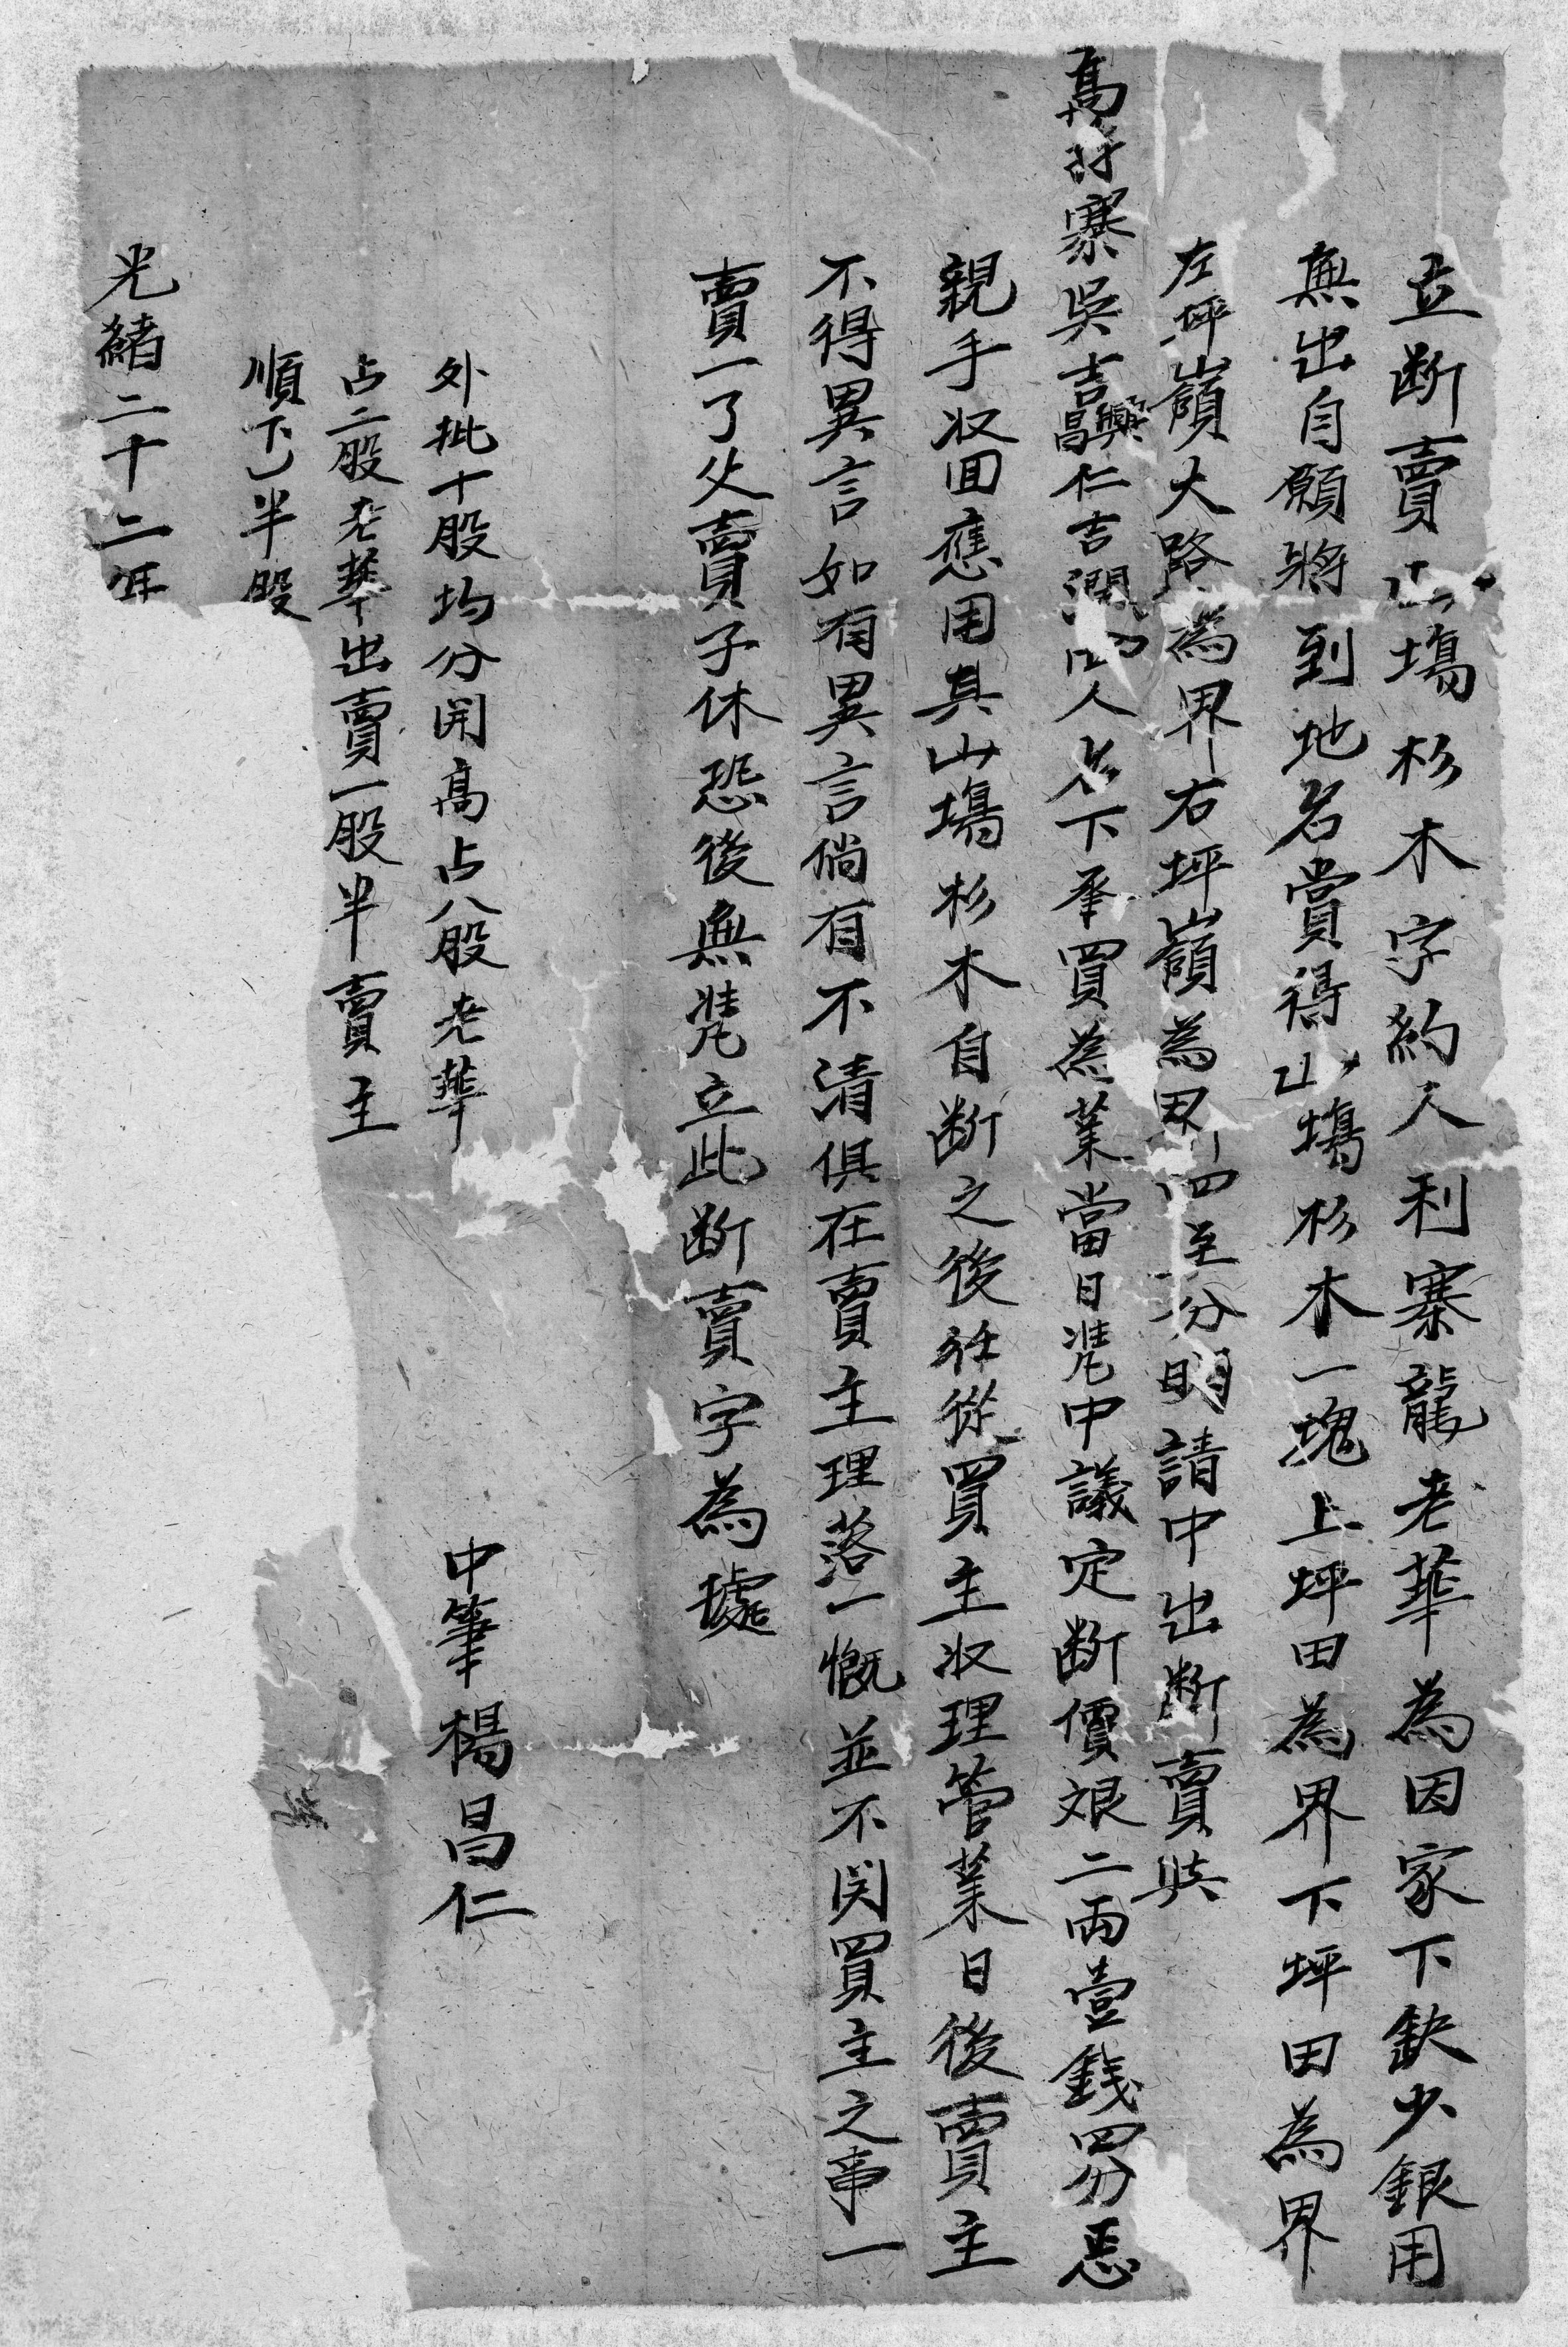 立断賣山塲杉木字約人利寨龍老華為因家下缺少銀用
無出自願將到地名賞得山塲杉木一塊上坪田為界下坪田為界
左坪嶺大路為界右坪嶺為界四至分明請中出断賣與
高寨吳吉興昌仁吉潤四人名下承買為業當日凴中議定断價艮二兩壹錢四分
親手収回應用其山塲杉木自断之後任從買主収理管業日後賣主
不得異言如有異言倘有不清俱在賣主理落一慨並不関買主之事一
賣一了父賣子休恐後無凴立此断賣字為據
外批十股均分開高占八股老華
占二股老華出賣一股半賣主
順下半股
中筆楊昌仁
光緒二十二年